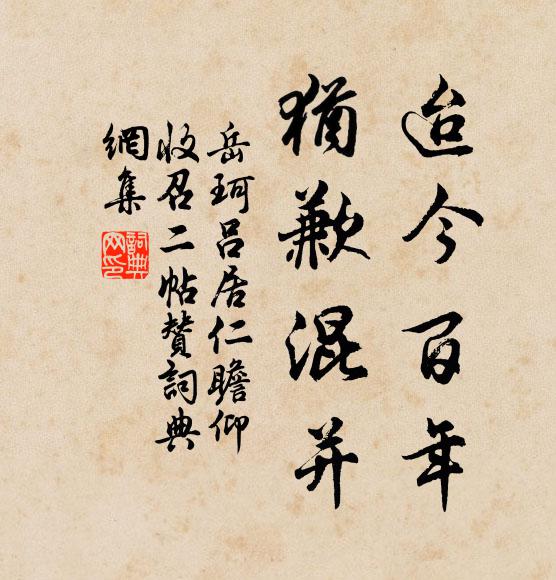 迨今百年
猶歉混并
岳珂吕居仁瞻仰
收召二帖贊詞典
網集
詞典网印